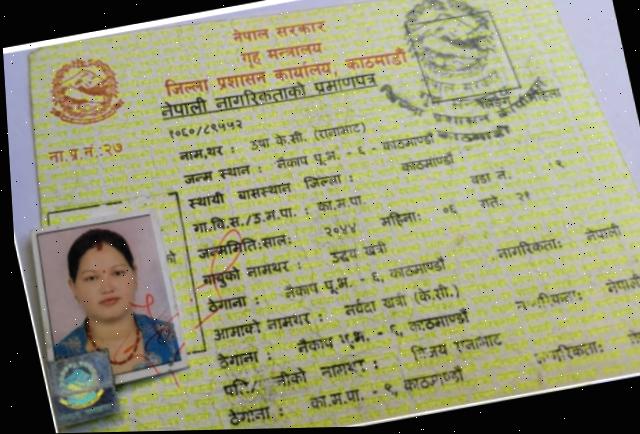 नेपाल सरकार
गृह मन्त्रालय
जिल्ला प्रशासन कार्यालय, काठमाडौं
नेपाली नागरिकताको प्रमाणपत्र
ना.प्र.नं. २७
नाम,थर : उषा के.सी. (रानाभाट)
जन्म स्थान : नैकाप पू.भ. - ६ - काठमाण्डौं
स्थायी बासस्थान जिल्ला : काठमाण्डौं
गा.वि.स./उ.म.पा. : का.म.पा. वडा नं. : ९
जन्ममिति:साल: २०४४ महिना: ०६ गते: २१
बाबुको नामथर : उद्धव खत्री नागरिकता: नेपाली
ठेगाना : नैकाप पू.भ. - ६, काठमाण्डौं
आमाको नामथर : नर्वदा खत्री (के.सी.)
ठेगाना : नैकाप पू.भ. - ६, काठमाण्डौं
नामथर : विजय रानाभाट
ठेगाना : का.म.पा. - ९ काठमाण्डौं